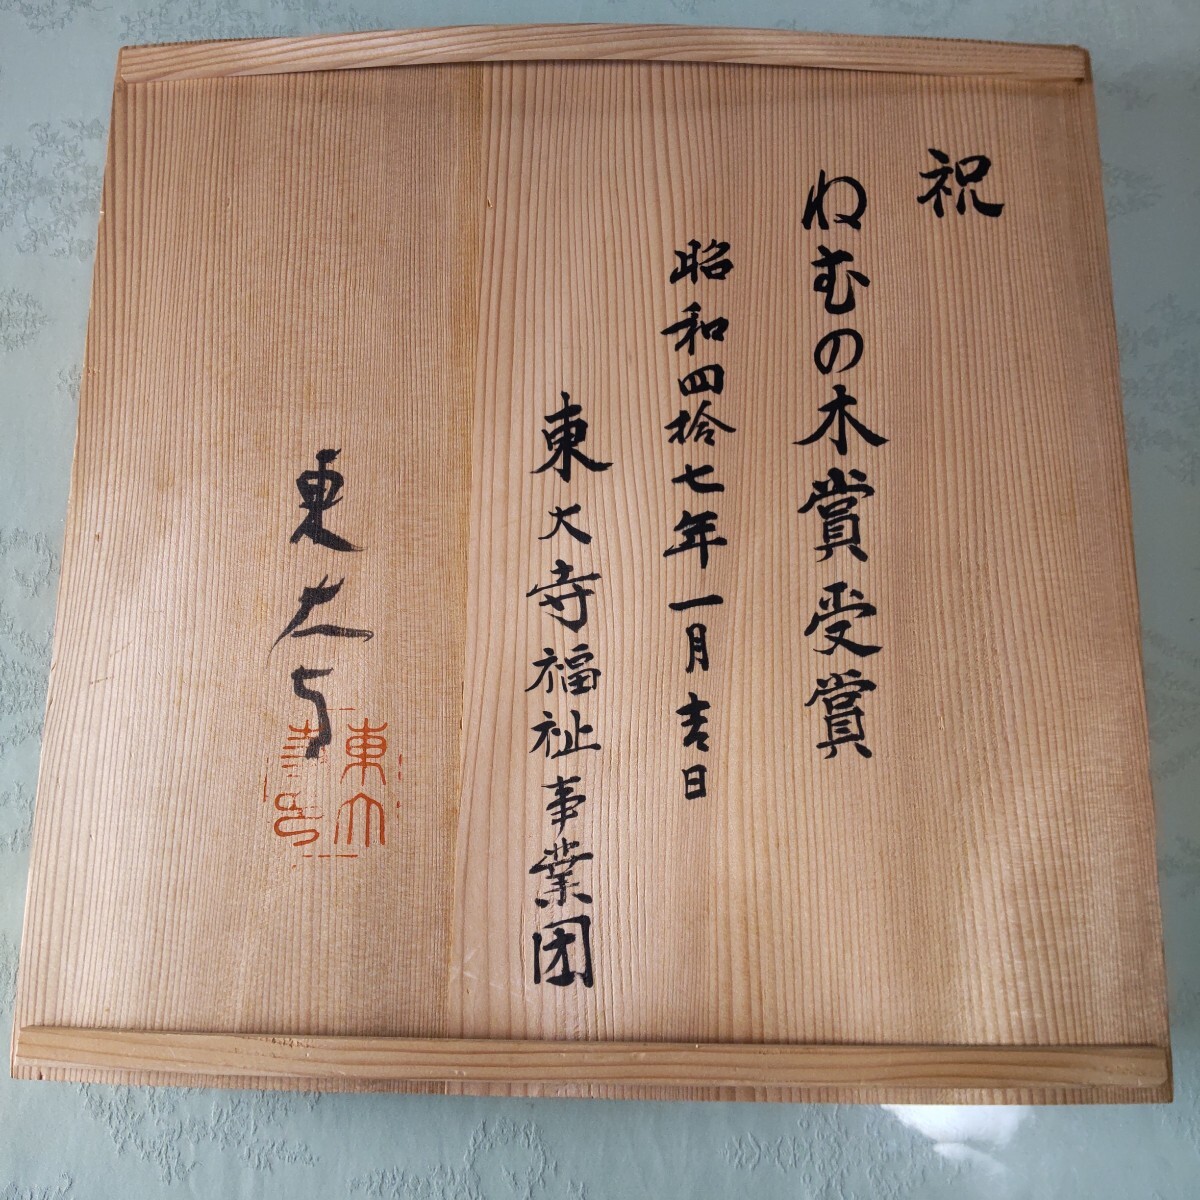 祝
ねむの木賞受賞
昭和四拾七年一月吉日
東大寺福祉事業団
東大寺
東大
寺印